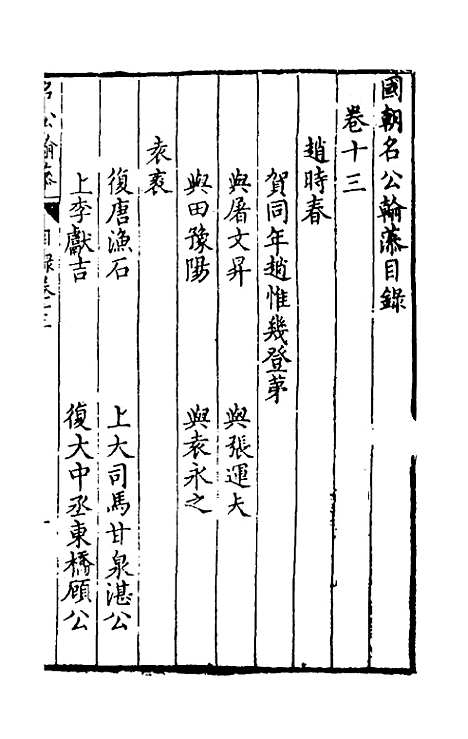 國朝名公翰藻目錄
卷十三
趙時春
賀同年趙惟幾登第
與屠文昇
與張運夫
與田豫陽
與袁永之
袁袠
復唐漁石
上大司馬甘泉湛公
上李獻吉
復大中丞東橋顧公
名公翰藻
目錄卷十三
一